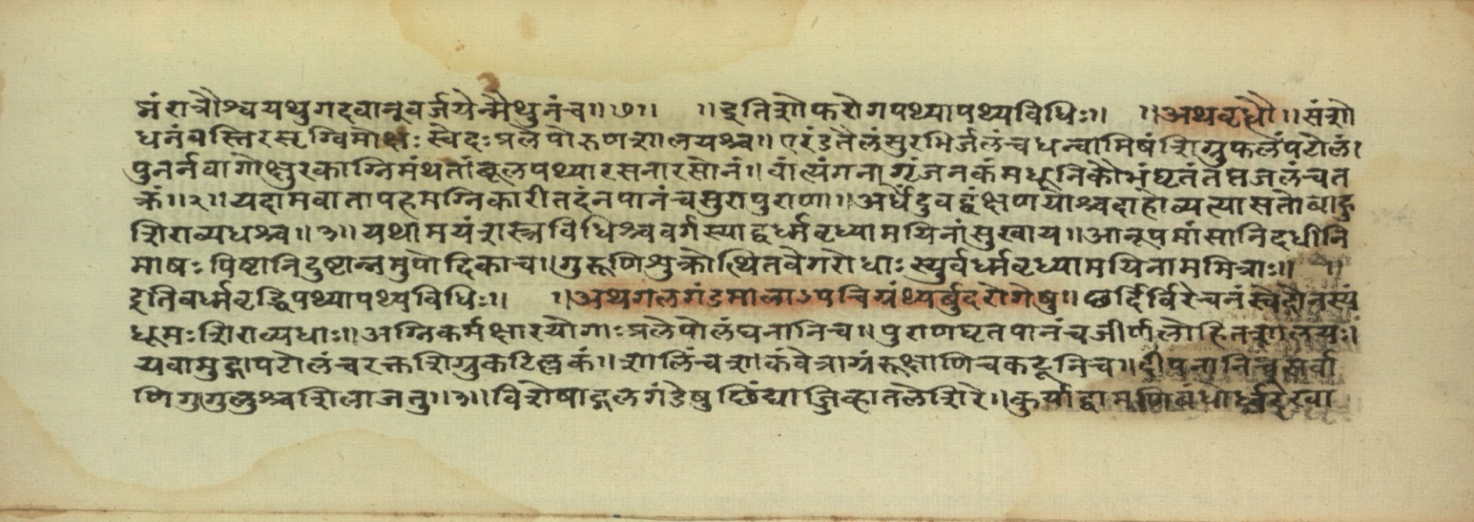 न्नं रात्रौ श्वयथुगदवानू वर्जयेन्मैथुनं च॥७॥ ॥इति शोफरोगपथ्यापथ्यविधिः॥ ॥अथ वृध्नौ॥ संशो
धनं वस्तिरसृग्विमोक्षः स्वेदः प्रलेपोरुणशालयश्च॥ एरंडतैलं सुरभिर्जलं च धन्वामिषं शिग्रुफलं पटोलं।
पुनर्नवागोक्षुरकाग्निमंथतांबूलपथ्यारसनारसोनं॥ वांत्यंगनागृंजनकं मधूनि कौंभं घृतं तप्तजलं च त
क्रं॥२॥ यदामवातापहमग्निकारी तदंनपानं च सुरापुराणा॥ अर्धेंदुवद्वंक्षणयोश्च दाहो व्यत्यासतो बाहु
शिराव्यधश्च॥३॥ यथामयं शस्त्रविधिश्च वर्गस्याद्वर्ध्मवृध्यामयिनां सुखाय॥ आनूपमांसानि दधीनि
माषः पिष्टानि दुष्टान्नमुपोदिका च॥ गुरूणि शुक्रोत्थितवेगरोधाः स्युर्वर्ध्मवृध्यामयिनाममित्राः॥ ॥
इति वर्ध्मवृद्धिपथ्यापथ्यविधिः॥ ॥अथ गलगंडमालाऽपचिग्रंथ्यर्बुदरोगेषु॥ छर्दिर्विरेचनं स्वेदो नस्यं
धूमः शिराव्यधाः॥ अग्निकर्मक्षारयोगाः प्रलेपो लंघनानि च॥ पुराणघृतपानं च जीर्णलोहितशालयः।
यवा मुद्गा पटोलं च रक्तशिग्रुकटिल्लकं॥ शालिंचशाकं वेत्राग्रं रूक्षाणि च कटूनि च॥ दीपनानि च सर्वा
णि गुग्गुलुश्च शिलाजतु॥३॥ विशेषाद्गलगंडेषु छिंद्याज्जिव्हातले शिरे॥ कुर्याद्वा